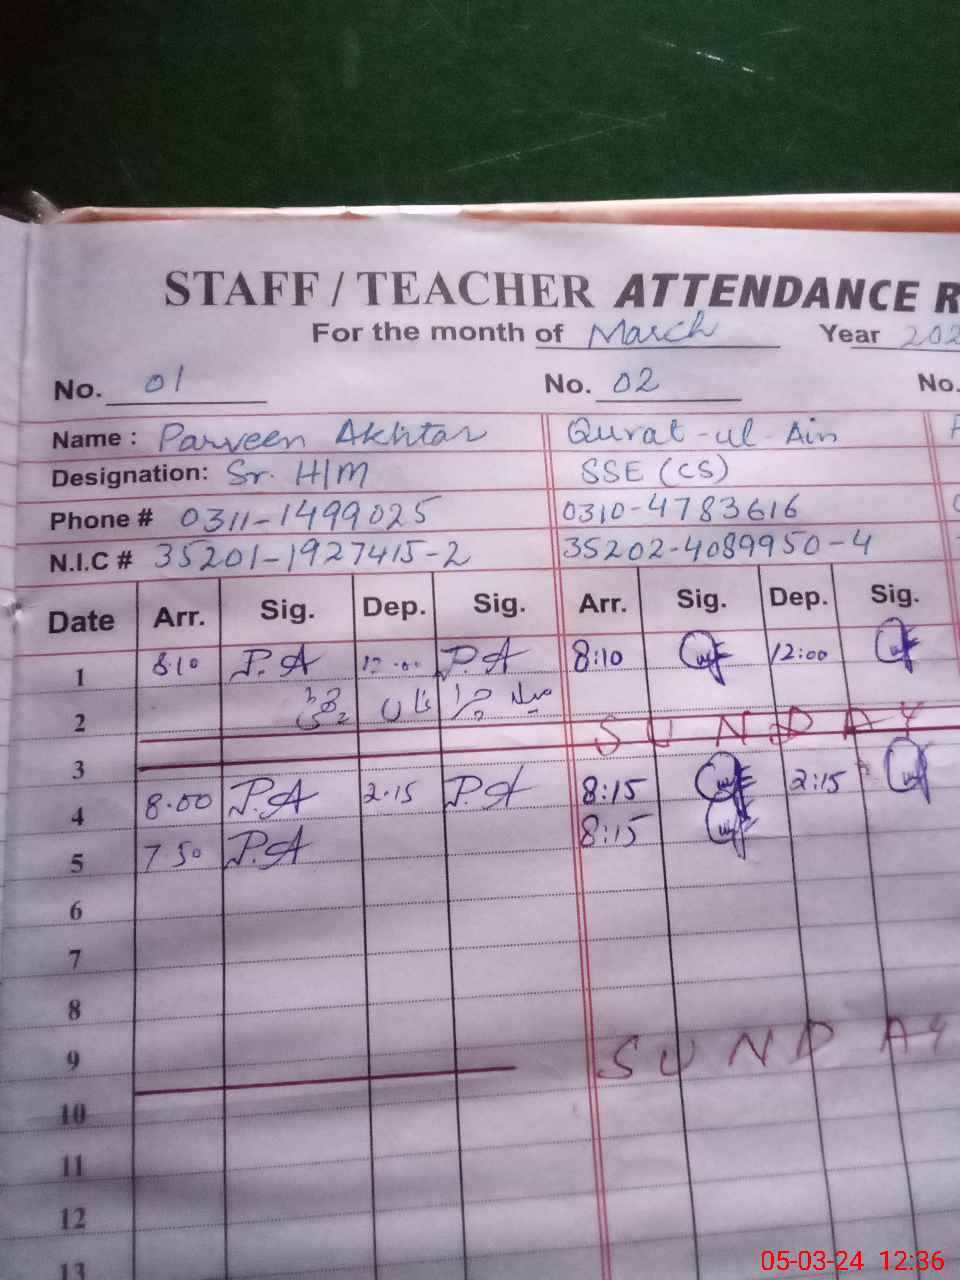 STAFF / TEACHER ATTENDANCE R
For the month of March Year 202
No. 01 No. 02 No.
Name : Parveen Akhtar Qurat-ul-Ain
Designation: Sr. H/M SSE (CS)
Phone # 0311-1499025 0310-4783616
N.I.C # 35201-1927415-2 35202-4089950-4
Date Arr. Sig. Dep. Sig. Arr. Sig. Dep. Sig.
1 8:10 P.A 12:00 P.A 8:10 12:00
2 میلہ چراغاں SUNDAY
3
4 8.00 P.A 2.15 P.A 8:15 2:15
5 7 50 P.A 8:15
6
7
8
9 SUNDAY
10
11
12
13
05-03-24 12:36